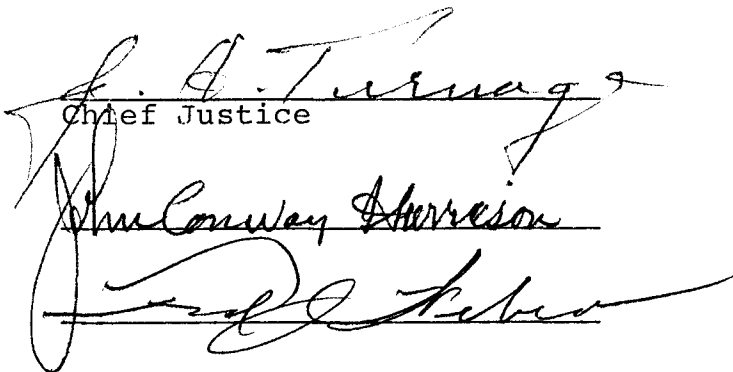 J. A. Turnage
Chief Justice
John Conway Harrison
Weber